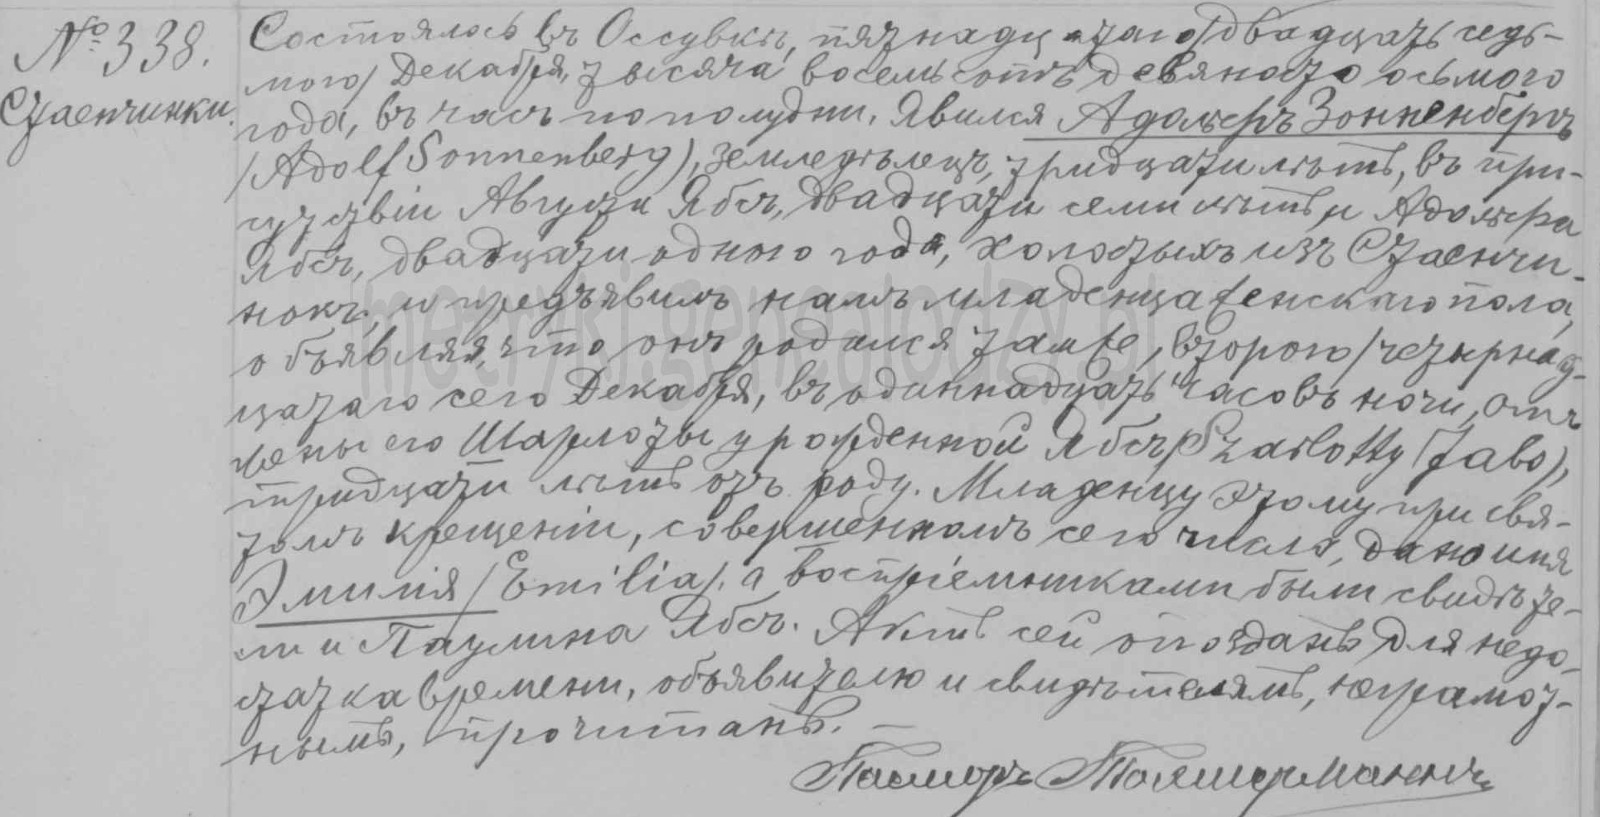 № 338.
Стаенчинки.
Состоялось въ Оссувкѣ, пятнадцатаго/двадцать седь-
мого/ Декабря, тысяча восемьсотъ девяносто осьмого
года, въ часъ по полудни. Явился Адольфъ Зонненбергъ
/Adolf Sonnenberg/, земледѣлецъ, тридцати лѣтъ, въ при-
сутствіи Августа Ябсъ, двадцати семи лѣтъ и Адольфа
Ябсъ, двадцати одного года, холостыхъ изъ Стаенчи-
нокъ, и предъявилъ намъ младенца женскаго пола,
объявляя, что онъ родился тамже, второго/четырнад-
цатаго сего Декабря, въ одиннадцать часовъ ночи, отъ
жены его Шарлоты урожденной Ябсъ/Szarlotty Jabs/,
тридцати лѣтъ отъ роду. Младенцу этому при свя-
томъ крещеніи, совершенномъ сего числа, дано имя
Эмилія/Emilia/, а воспріемниками были свидѣте-
ли и Паулина Ябсъ. Актъ сей опозданъ для недо-
статка времени, объявителю и свидѣтелямъ, неграмот-
нымъ, прочитанъ. —
Пасторъ
metryki.genealodzy.pl